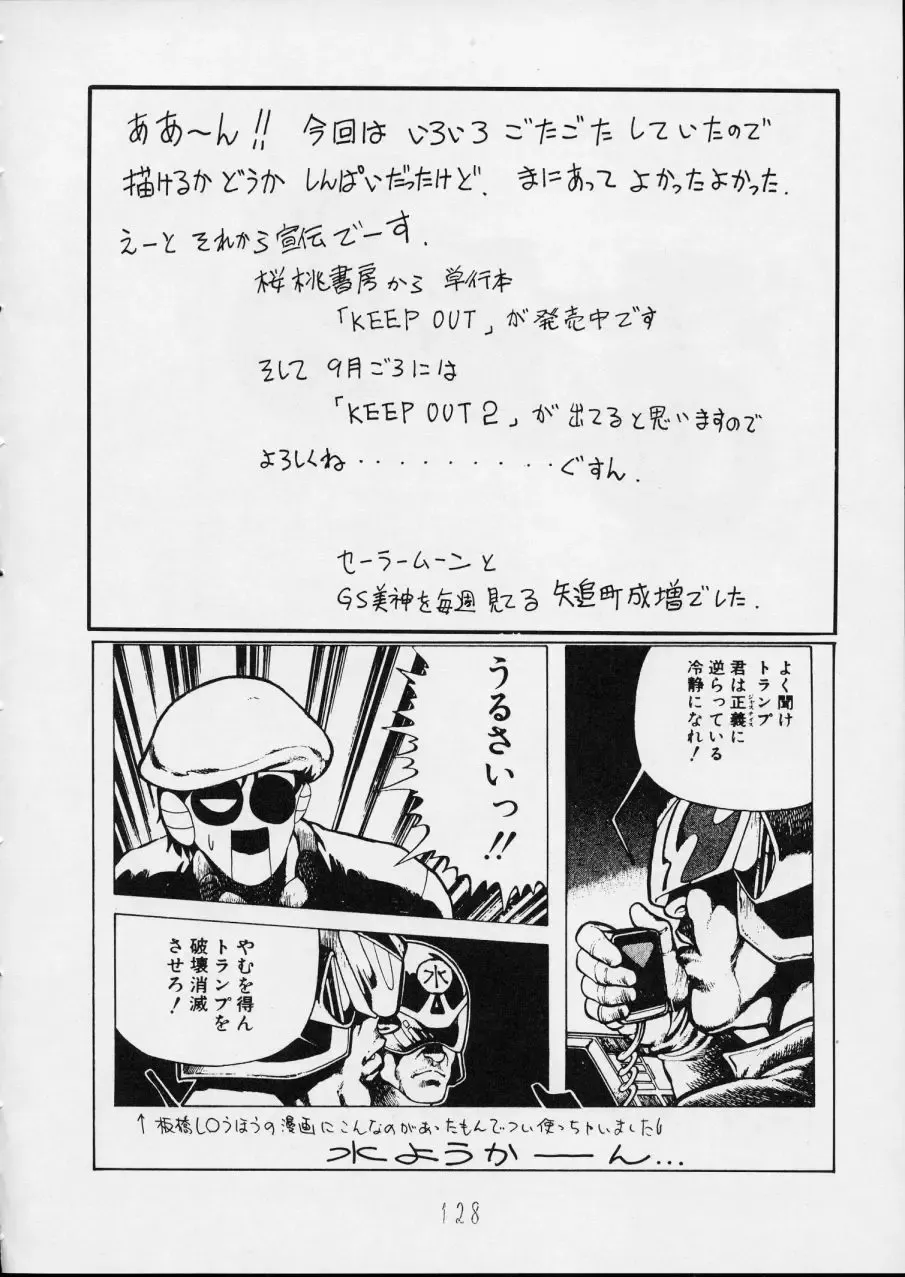 ああ～ん!! 今回は いろいろ ごたごた していたので
描けるか どうか しんぱいだったけど、まにあって よかったよかった.
えーと それから宣伝でーす.
桜桃書房から 単行本
「KEEP OUT」が発売中です
そして 9月ごろには
「KEEP OUT 2」が 出てると思いますので
よろしくね・・・・・・・・・ぐすん.
セーラームーンと
GS美神を毎週 見てる 矢追町成増でした.
よく聞け
トランプ
君は正義に
ジャスティス
逆らっている
冷静になれ!
うるさいっ!!
水
やむを得ん
トランプを
破壊消滅
させろ!
↑板橋し○うほうの漫画にこんなのがあったもんでつい使っちゃいました
水ようかーん...
128